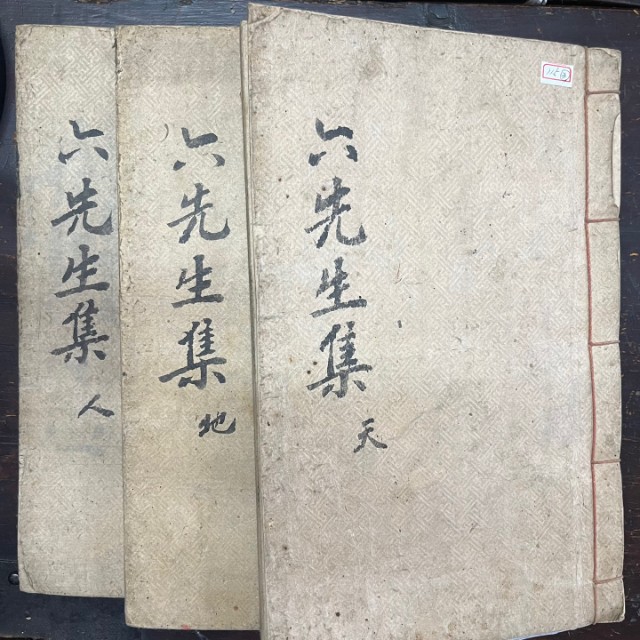 六先生集
天
六先生集
地
六先生集
人